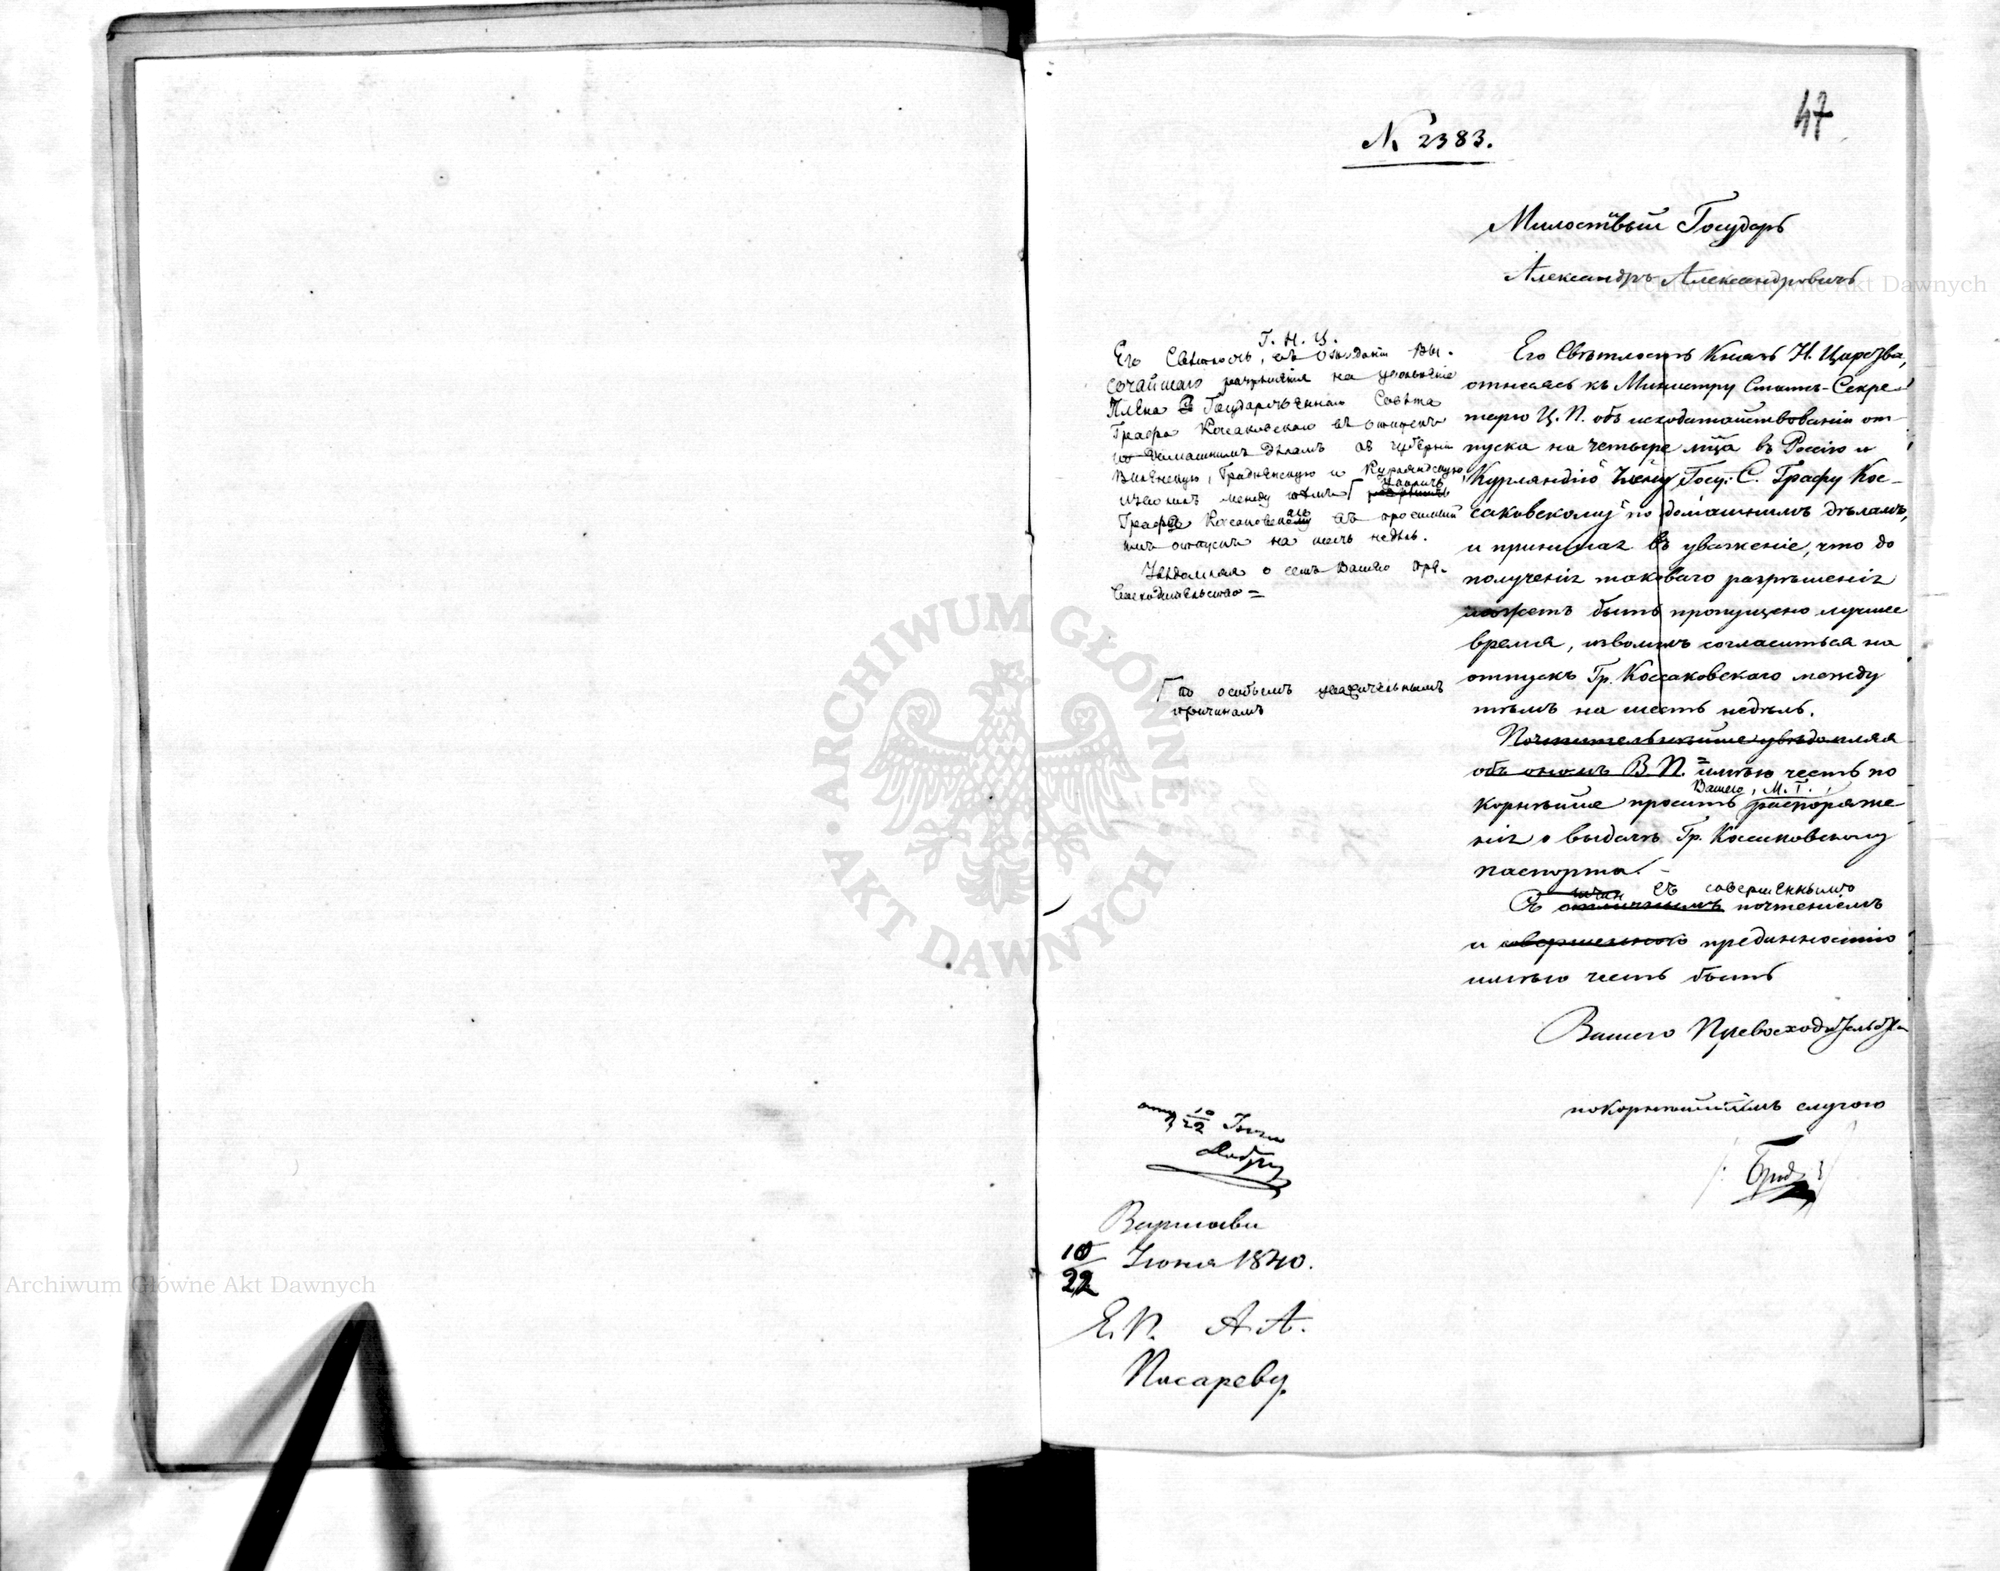 47
N 2383.
Милостивый Государь
Александръ Александровичъ
Г. Н. Ц.
Его Свѣтлость, въ ожиданіи Вы-
сочайшаго разрѣшенія на увольненіе
Члена Государственнаго Совѣта
Графа Косаковскаго въ отпускъ
по домашнимъ дѣламъ въ губерніи
Виленскую, Гродненскую и Курляндскую,
между тѣмъ
Графа Косаковскаго въ
отпускъ на шесть недѣль.
Увѣдомляя о семъ Вашего Пре-
восходительство =
по особымъ уважительнымъ
причинамъ
Его Свѣтлость Князь Н. Царства,
относясь къ Министру Статсъ-Секре-
тарю Ц. П. объ исходатайствованіи от-
пуска на четыре мца въ Россію и
Курляндію Члену Госу. С. Графу Кос-
саковскому по домашнимъ дѣламъ,
и принимая въ уваженіе, что до
полученія таковаго разрѣшенія
можетъ быть пропущено лучшее
время, изволилъ согласиться на
отпускъ Гр. Коссаковскаго между
тѣмъ на шесть недѣль.
Почтительнѣйше увѣдомляя
объ ономъ В. П. имѣю честь по
корнѣйше просить распоряже
Вашего, М. Г.,
нія о выдачѣ Гр. Косаковскому
паспорта. -
съ совершеннымъ
Съ отличнымъ почтеніемъ
и совершенною преданностію
имѣю честь быть
Вашего Превосходительства
покорнѣйшимъ слугою
10/22
Варшава
10/22 Іюня 1840.
Е. П. А. А.
Писареву.
Archiwum Główne Akt Dawnych
Archiwum Główne Akt Dawnych
ARCHIWUM GŁÓWNE
AKT DAWNYCH